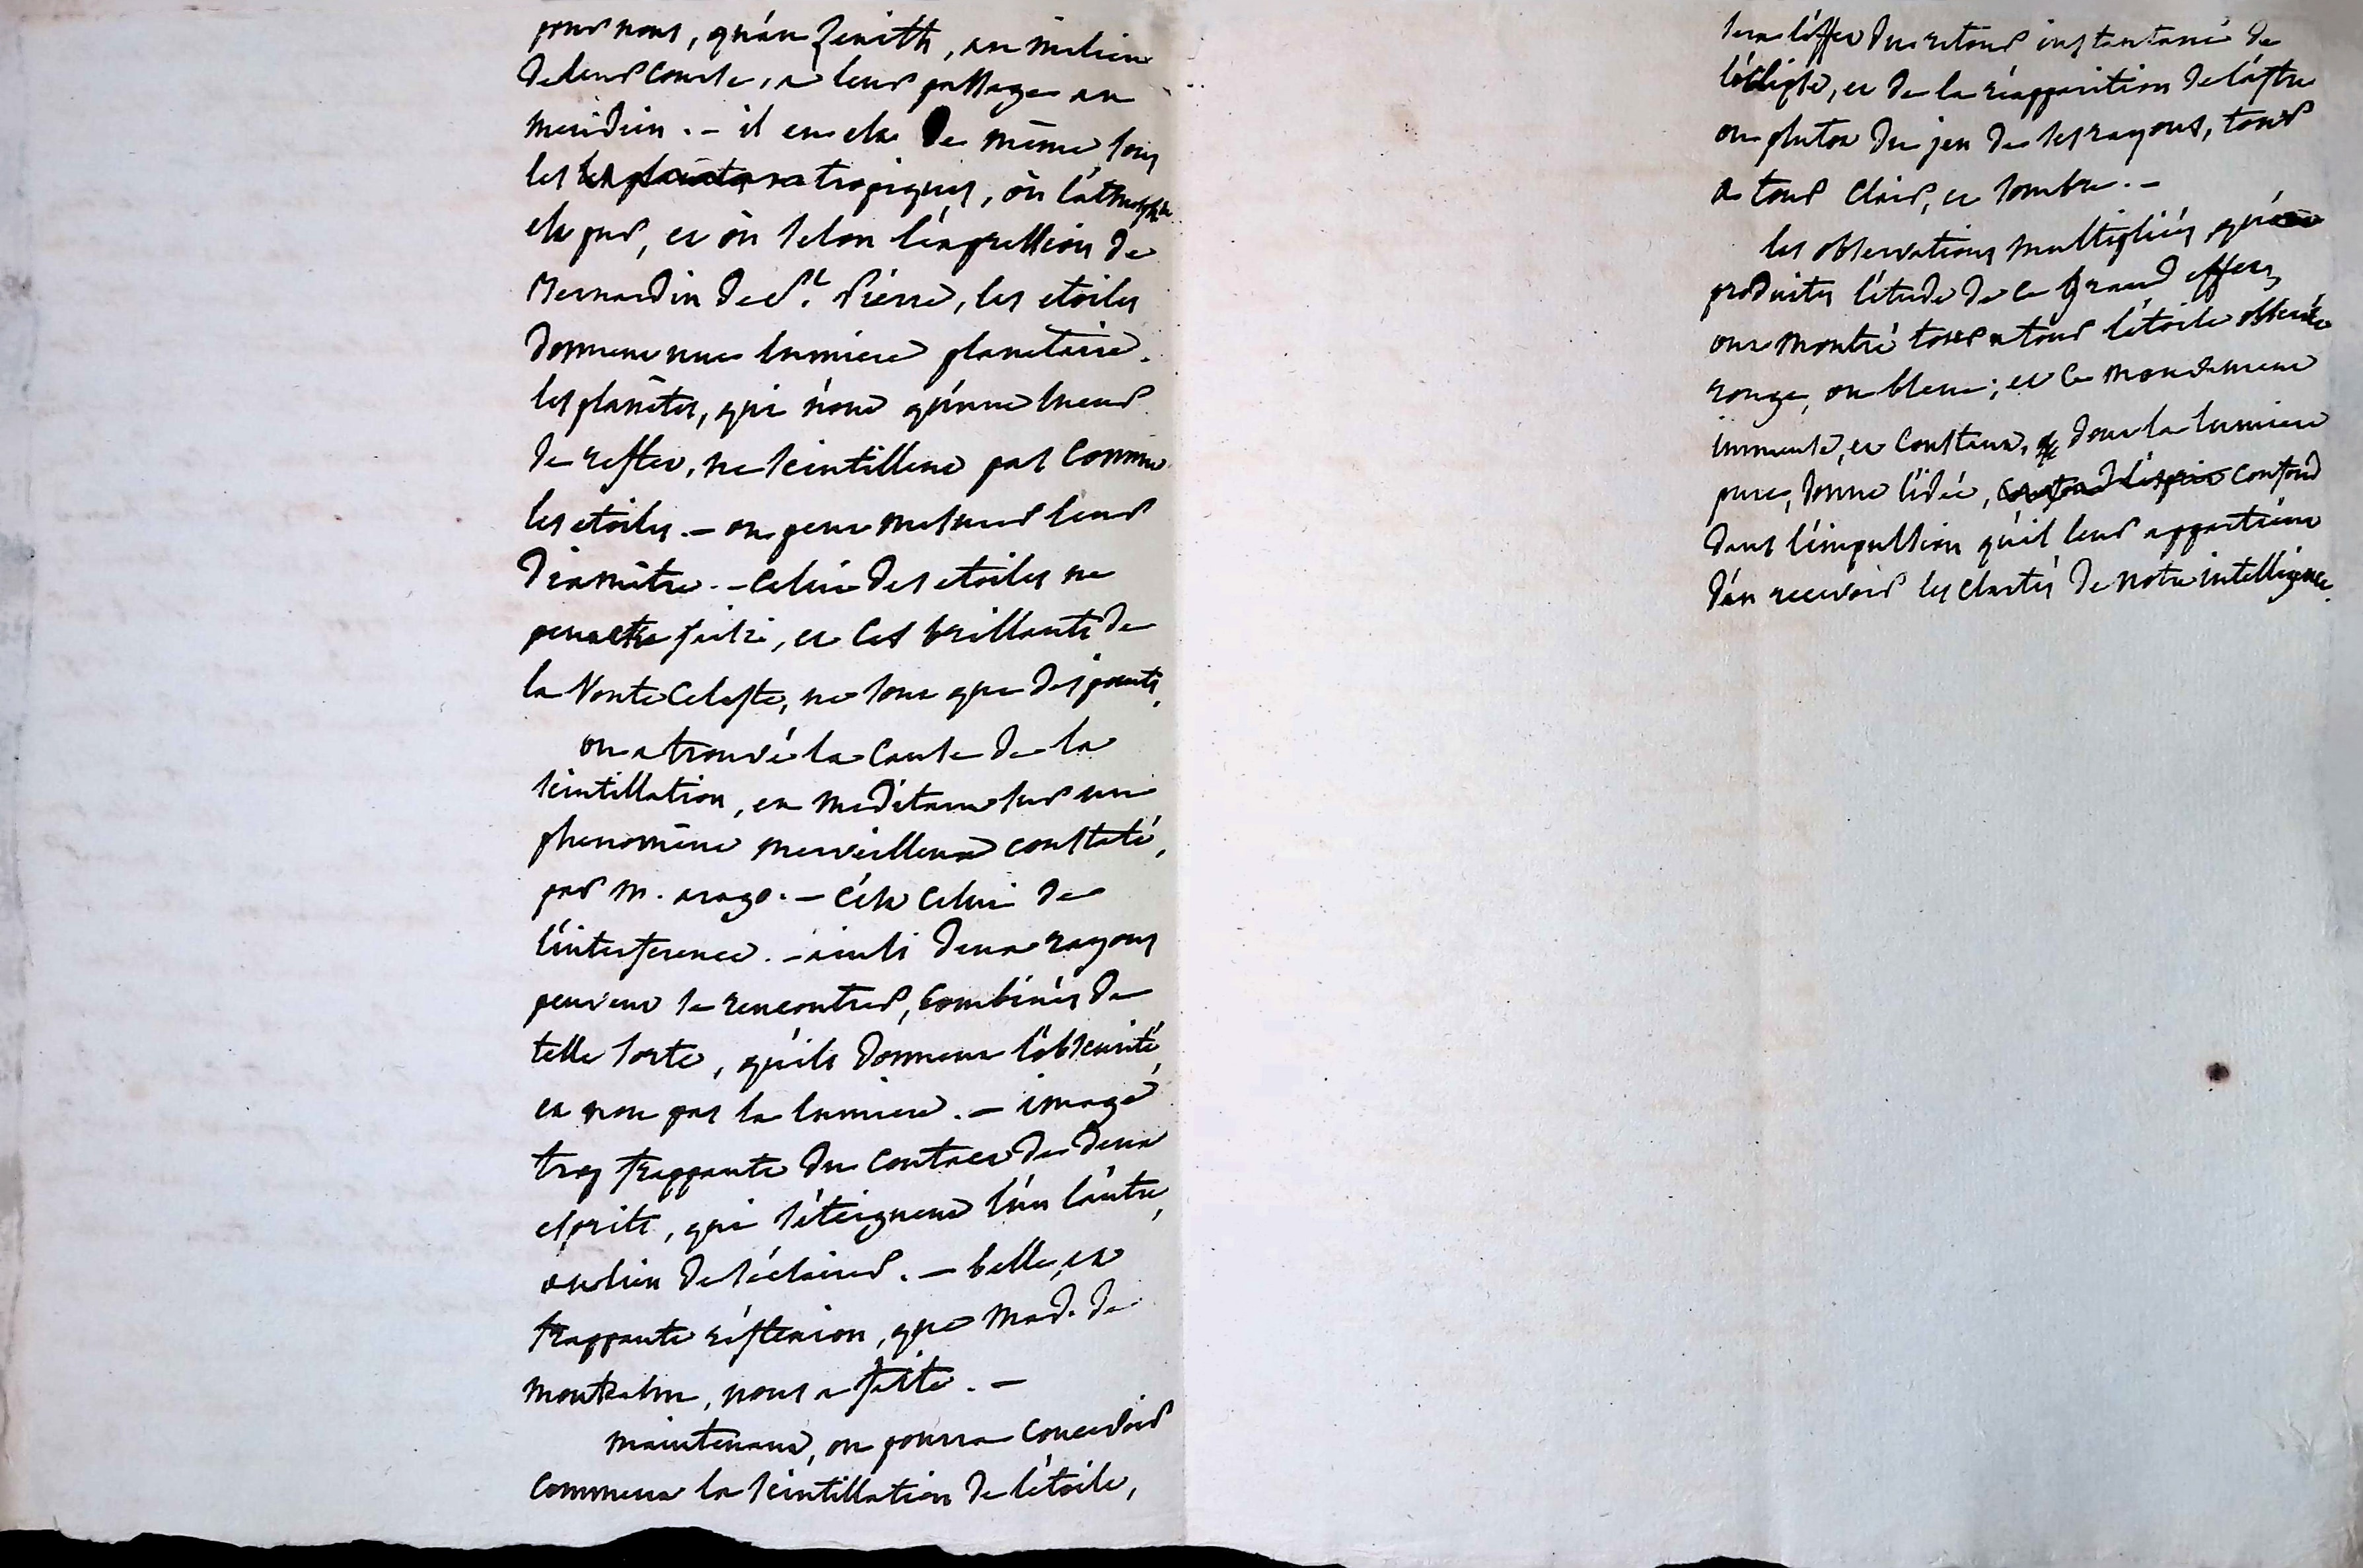 pour nous, qu'au Zenith, au milieu
de leur course, a leur passage au
meridien. - il en est de même sous
les tropiques, où l'athmosphère
est pur, et où selon l'éxpression de
Bernardin de St. Pierre, les etoiles
donnent une lumiere planetaire.
les planètes, qui n'ont qu'une lueur
de reflet, ne scintillent pas comme
les etoiles. - on peut mesurer leur
diamètre. - celui des etoiles ne
peut etre saisi, et ces brillants de
la Voute Celeste, ne sont que des points.
on a trouvé la cause de la
scintillation, en meditant sur un
phenomène merveilleux constaté,
par M. arago. - c'ést celui de
l'interference. - ainsi deux rayons
peuvent se rencontrer, combinés de
telle sorte, qu'ils donnent l'obscurité,
et non pas la lumiere. - image
trop frappante du contact de deux
esprits, qui s'éteignent l'un l'autre,
au lieu de s'éclairer. - belle, et
frappante réflexion, que Mad. de
montcalm, nous a faite. -
maintenant, on pourra concevoir
comment la scintillation de l'étoile,
sera l'effet du retour instantané de
l'éclipse, et de la réapparition de l'astre
ou plutot du jeu de ses rayons, tour
a tour clair, et sombre. -
les observations multipliées, qu'a
produites l'étude de ce grand effet,
ont montré tour a tour l'étoile observée
rouge, ou bleue; et ce mouvement
immense, et constant, dont la lumiere
pure, donne l'idée, confond
dans l'impulsion qu'il leur appartient
d'en recevoir les clartés de notre intelligence.